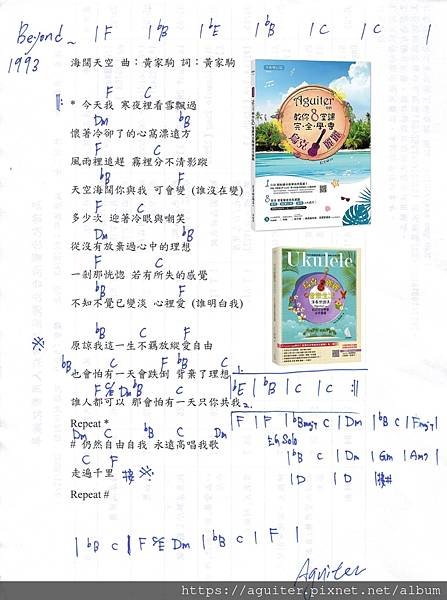 Beyond ~ | F | bB | bE | bB | C | C |
1993
海闊天空 曲：黃家駒 詞：黃家駒
F C
* 今天我 寒夜裡看雪飄過
Dm bB
懷著冷卻了的心窩漂遠方
F C
風雨裡追趕 霧裡分不清影蹤
Dm bB
天空海闊你與我 可會變 (誰沒在變)
F C
多少次 迎著冷眼與嘲笑
Dm bB
從沒有放棄過心中的理想
F C
一剎那恍惚 若有所失的感覺
Dm bB
不知不覺已變淡 心裡愛 (誰明白我)
bB C F
※ 原諒我這一生不羈放縱愛自由
bB C F C/E Dm
也會怕有一天會跌倒 背棄了理想 1.
bE | bB | C | C :||
誰人都可以 那會怕有一天只你共我 2.
| F | F | bBmaj7 C | Dm | bB C | Fmaj7 |
Repeat *
# 仍然自由自我 永遠高唱我歌
Solo
| bB C | Dm | Gm | Am7 |
C F
走遍千里 接 ※
| D | D | 接#
Repeat #
| bB C | F C/E Dm | bB C | F |
Aguiter
教你8堂課
完全學會
烏克麗麗
Ukulele
Aguiter
https://aguiter.pixnet.net/album